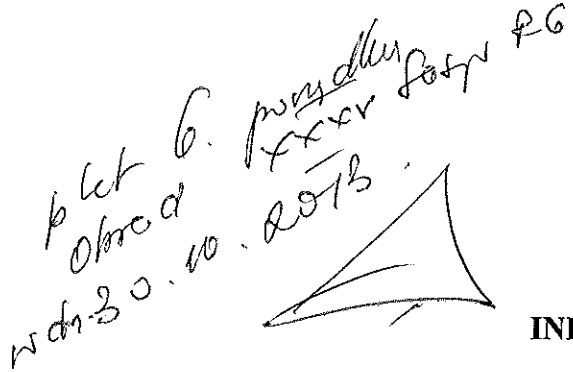 pkt 6. porządku
Obrad XXXV Sesji RG
w dn. 30.10.2013.
INI